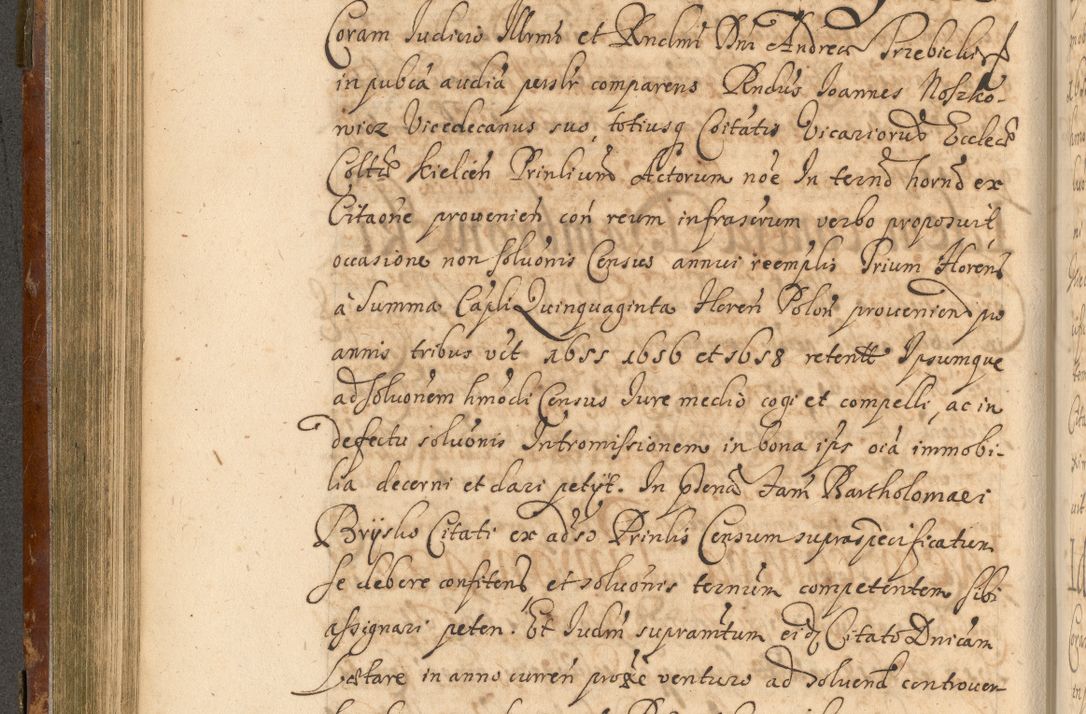 Coram Iudicio Illrmi et Rndmi Dni Andreæ Trzebicki
in pubca audia perslr comparens Rndus Ioannes Noszko-
wicz Vicedecanus suo, totiusq Coitatis Vicariorum Ecclesæ
Colltæ Kielceń Prinlium Actorum noe In termō hornō ex
Citaone provenień coń reum infrascrum verbo proposuit
occasione non Solvonis Census annui reemplis Trium Floreno
à Summa Capli Quinquaginta Floreń Poloń provenien pro
annis tribus vźt 1655 1656 et 1658 retentt Ipsumque
ad Solvonem hmodi Census Iure medio cogi et compelli, ac in
defectu solvonis Intromissionem in bona ips oia immobi-
lia decerni et dari petyt. In pdená Fam Bartholomaei
Bryski Citati ex adso Prinlis Censum supraspecificatum
se debere confitens et solvonis ternum competentem sibi
assignari peten. Et Iudm supramtum eidz Citato Dnicam
Lætare in anno curreń proge venturo ad Solvend controver